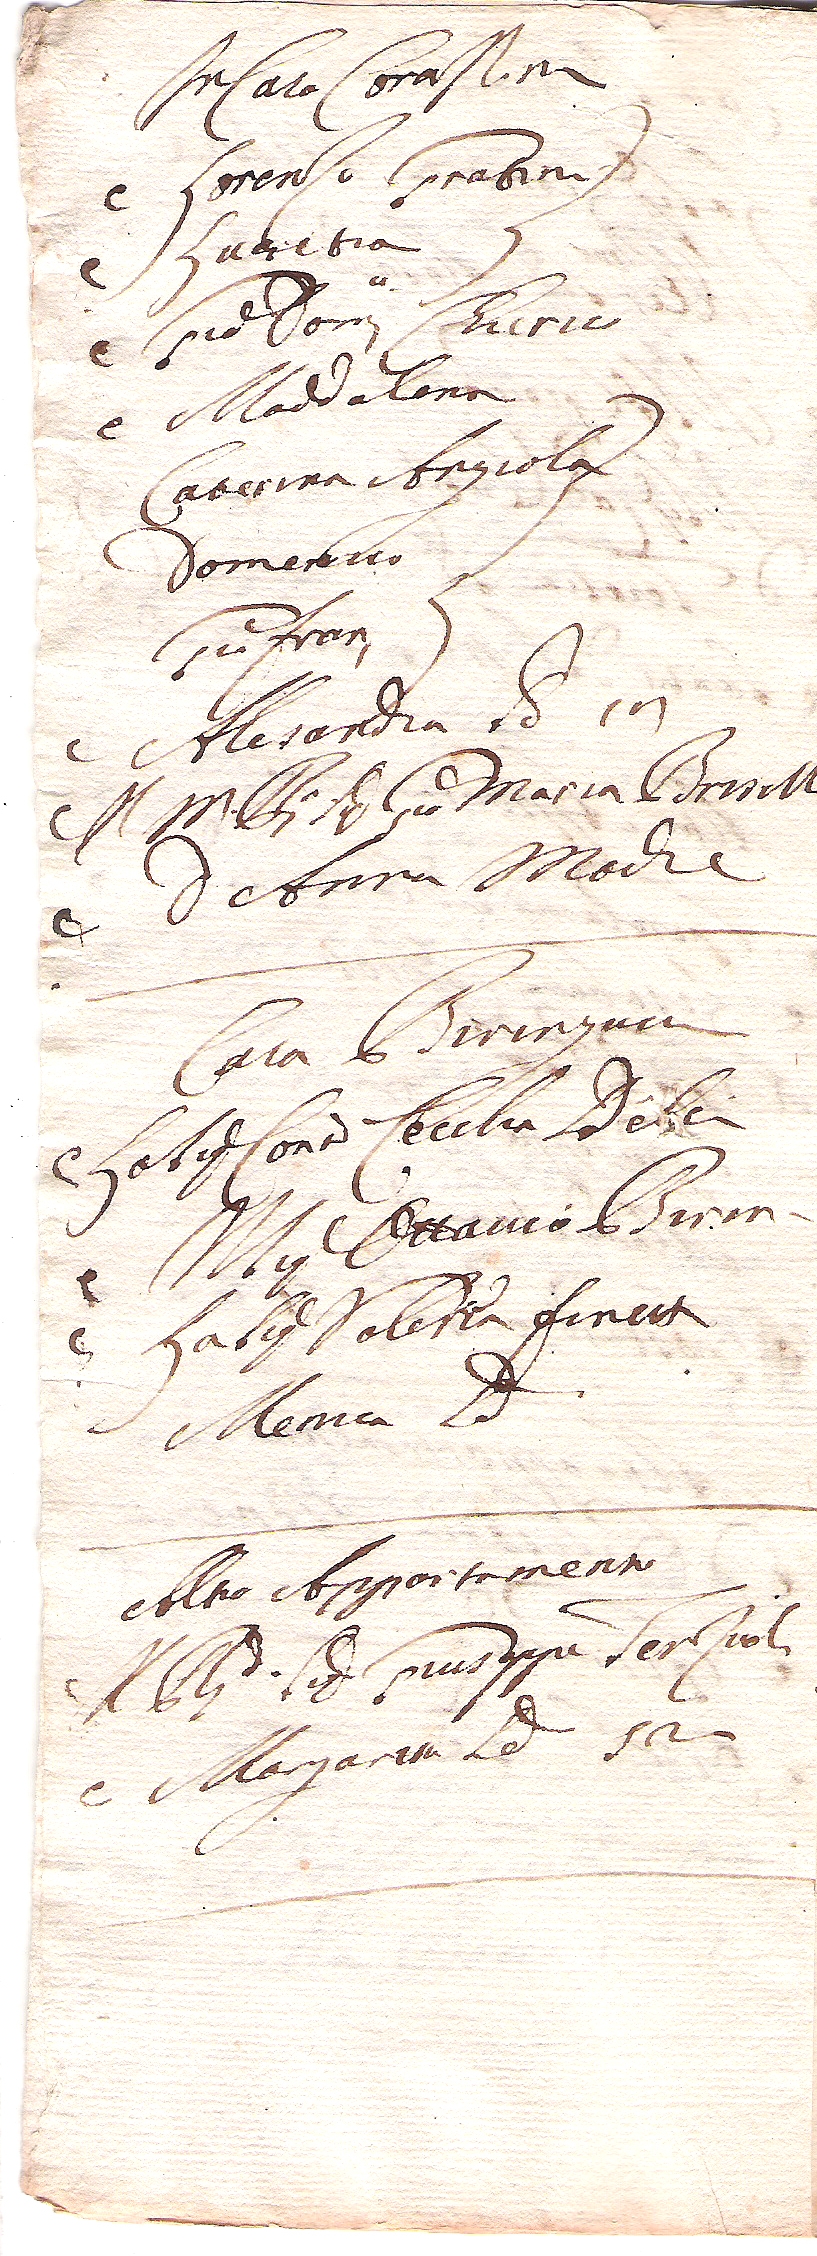 In Casa Corassini
c Lorenzo Grabini
c Lucretia
c Gio: Dom:co Chierico
c Maddalena
Caterina Angiola
Domenico
Gio fran
c Alesandra Sa
c Il M. Sig Gio Maria Brisell
c D Anna Madre
Casa Biringucci
c La Sig Cont Cecilia Delci
c Il Sig Ottavio Birin
c La Sig Valeria finetti
Menica Sa
Altro Appartamento
c Il Sig Giuseppe Terzuoli
c Margarita Sa 52